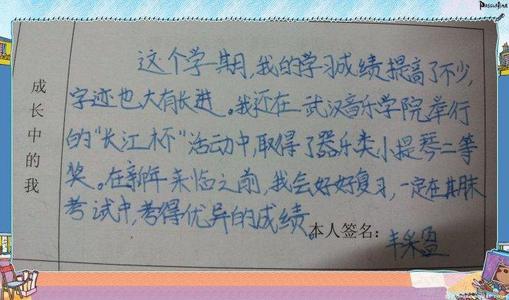 成长中的我
这个学期,我的学习成绩提高了不少,
字迹也大有长进。我还在武汉音乐学院举行
的“长江杯”活动中,取得了器乐类小提琴二等
奖。在新年来临之前,我会好好复习,一定在期末
考试中,考得优异的成绩。
本人签名: